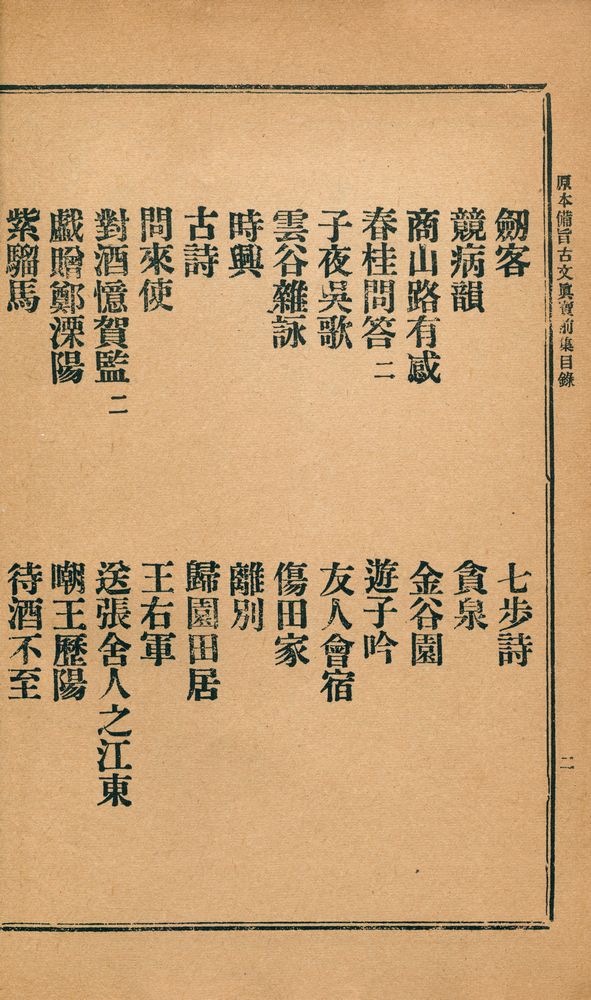 原本備旨古文眞寶前集目錄 二
劒客 七步詩
競病韻 貪泉
商山路有感 金谷園
春桂問答 二 遊子吟
子夜吳歌 友人會宿
雲谷雜詠 傷田家
時興 離別
古詩 歸園田居
問來使 王右軍
對酒憶賀監 二 送張舍人之江東
戱贈鄭溧陽 嘲王歷陽
紫騮馬 待酒不至